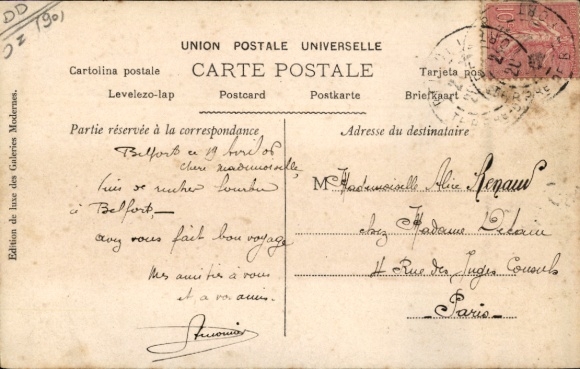 DD
UNION POSTALE UNIVERSELLE
Cartolina postale CARTE POSTALE Tarjeta pos
Levelezo-lap Postcard Postkarte Briefkaart
Partie réservée à la correspondance
Belfort ce 19 Avril 06
chère mademoiselle
suis de
à Belfort
avez vous fait bon voyage
Mes amitiés à vous
et a vos amis.
Adresse du destinataire
M Mademoiselle Alice Renaud
chez Madame
4 Rue des Juges Consuls
Paris
Edition de luxe des Galeries Modernes.